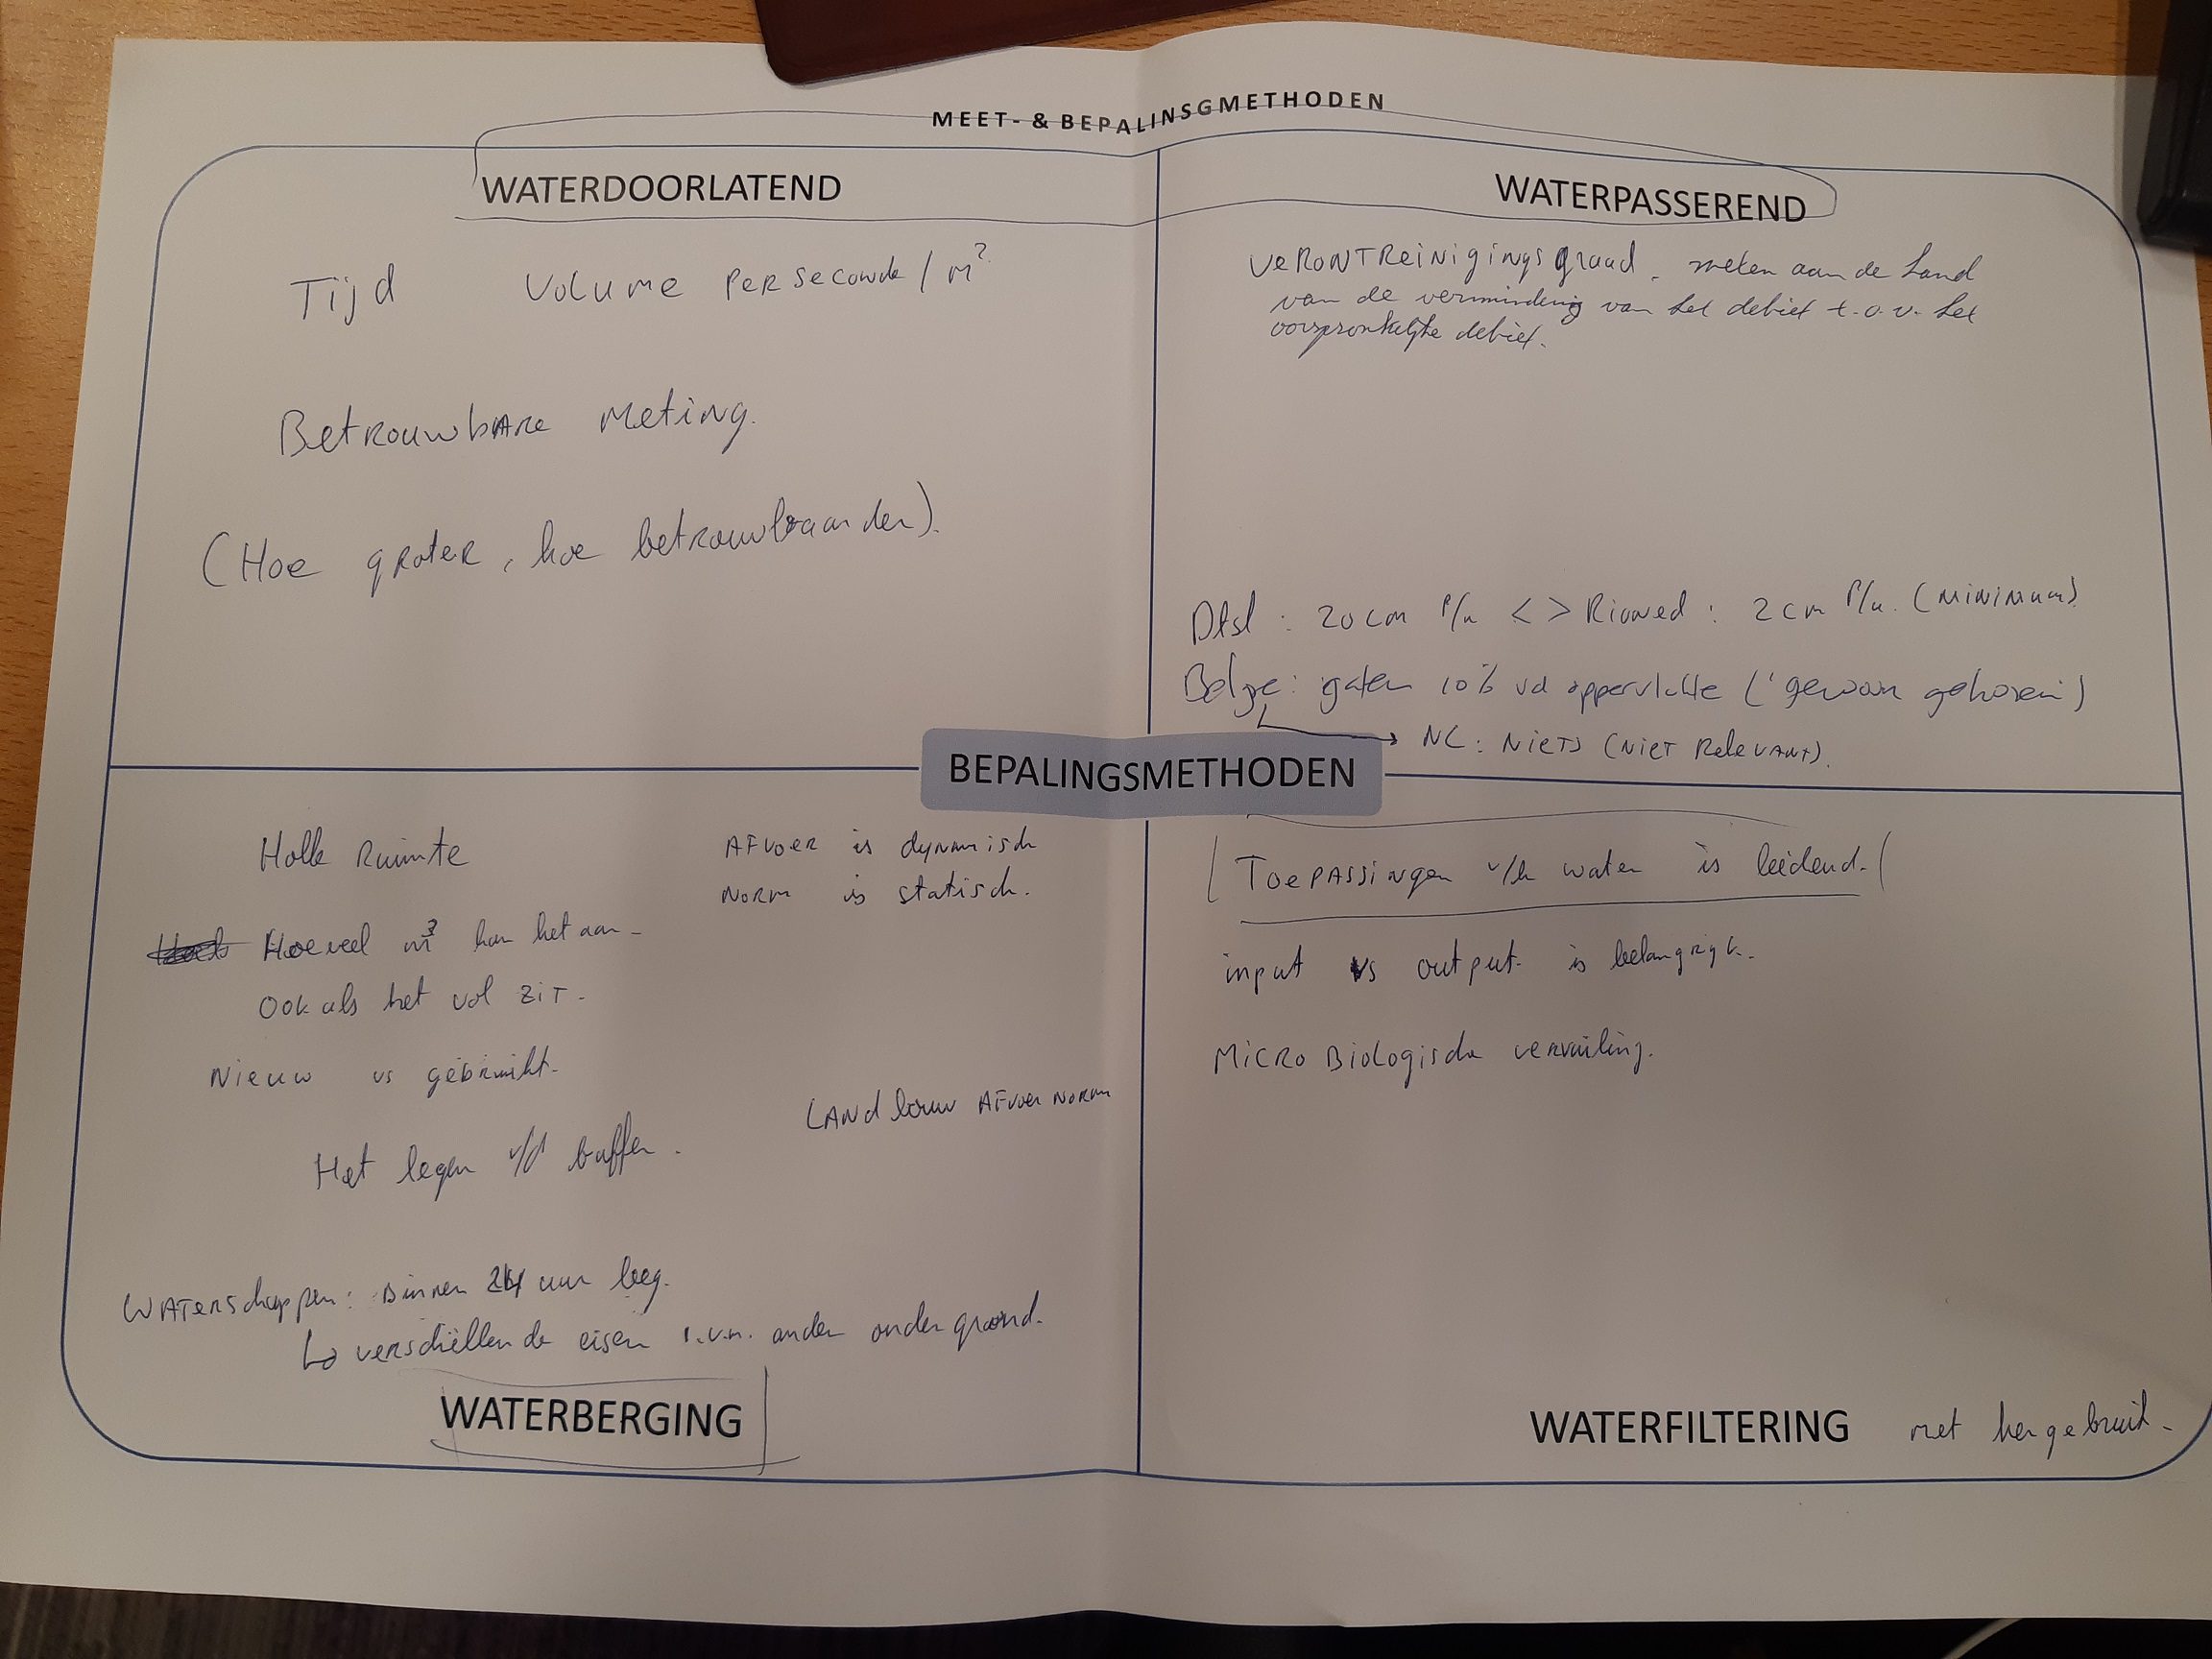 MEET- & BEPALINSGMETHODEN
WATERDOORLATEND
Tijd Volume per seconde / m²
Betrouwbare meting.
(Hoe groter, hoe betrouwbaarder).
WATERPASSEREND
Verontreinigingsgraad. meten aan de hand
van de vermindering van het debiet t.o.v. het
oorspronkelijke debiet.
Dtsl : 20 cm P/u <> Rioned : 2 cm P/u. (minimum)
Belgie: gaten 10% vd oppervlakte ('gewoon gekozen)
NL: Niets (niet relevant).
BEPALINGSMETHODEN
Holle Ruimte
Hoeveel m³ kan het aan.
Ook als het vol zit.
Nieuw vs gebruikt.
Het legen v/d buffer.
Afvoer is dynamisch
Norm is statisch.
Landbouw afvoer norm
Waterschappen: Binnen 24 uur leeg.
verschillende eisen i.v.m. ander ondergrond.
WATERBERGING
Toepassingen v/h water is leidend.
input vs output. is belangrijk.
Micro Biologische vervuiling.
WATERFILTERING met hergebruik.